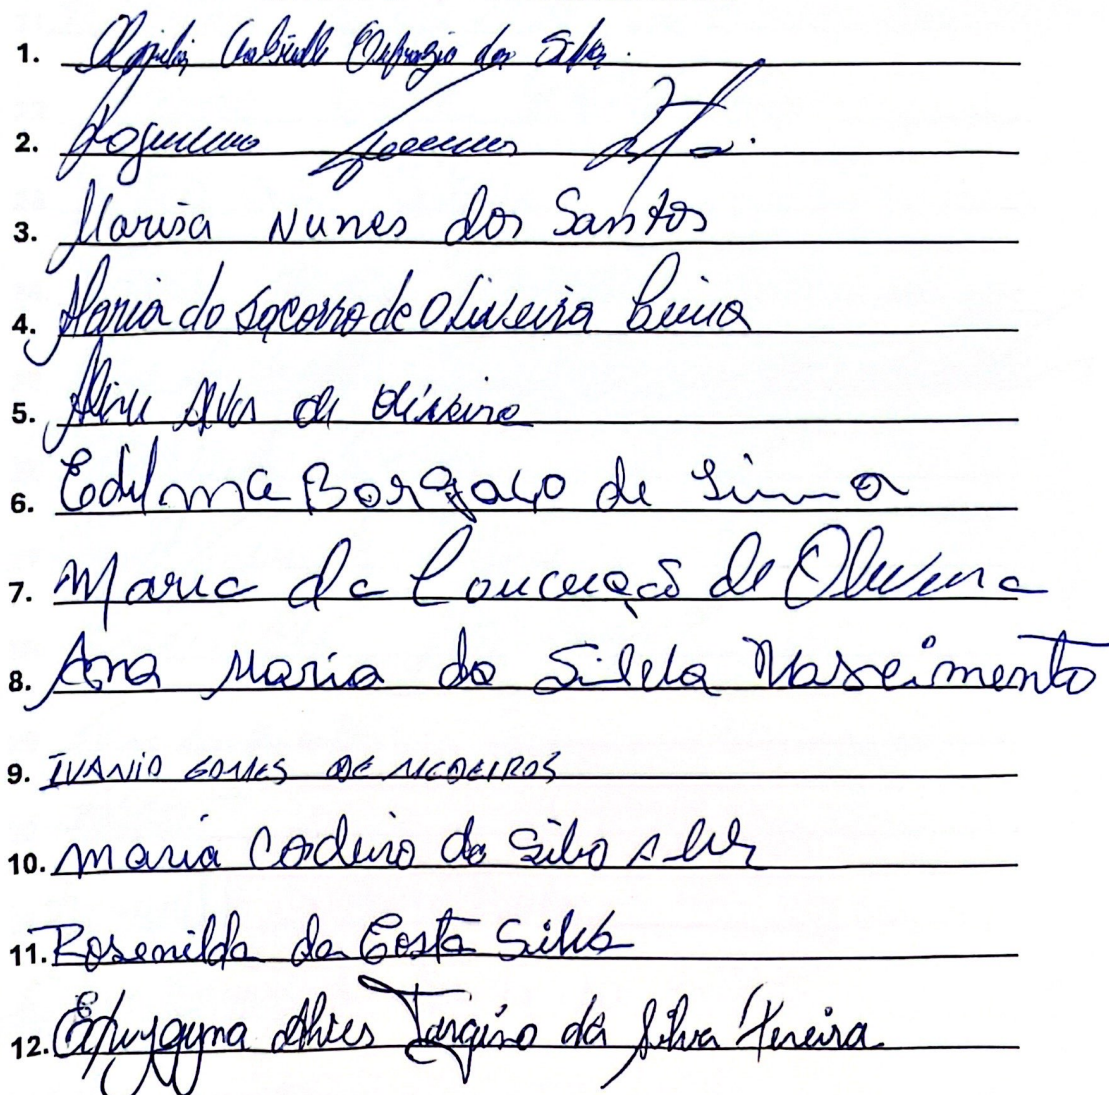 1. Gabrielle da Silva
2.
3. Marisa Nunes dos Santos
4. Maria do Socorro de Oliveira
5. Aline Alves de Oliveira
6. Edilma de Lima
7. Maria da Conceição de Oliveira
8. Ana Maria da Silva Nascimento
9. IVANIO GOMES DE MEDEIROS
10. Maria Cordeiro da Silva
11. Rosenilda da Costa Silva
12. Alves Targino da Silva Pereira